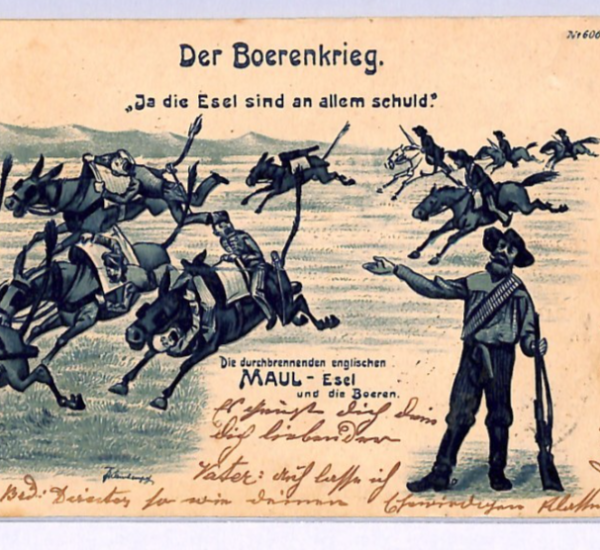 Nr 606
Der Boerenkrieg.
„Ja die Esel sind an allem schuld."
Die durchbrennenden englischen
MAUL - Esel
und die Boeren.
Es grüßt dich dein
dich liebender
Vater: auch lasse ich
Bed: Director so wie deinen Ehrwürdigen